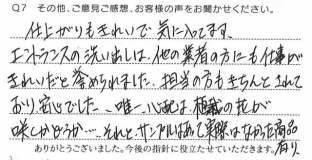 Q7 その他、ご意見ご感想、お客様の声をお聞かせください。
仕上がりもきれいで気に入ってます。
エントランスの洗い出しは、他の業者の方にも仕事が
きれいだと誉められました。担当の方もきちんとされて
おり安心でした。唯一、心配は植栽の花が
咲くかどうか…。それとサンプルはあって実際はなかった商品
有り
ありがとうございました。今後の指針に役立たせていただきます。